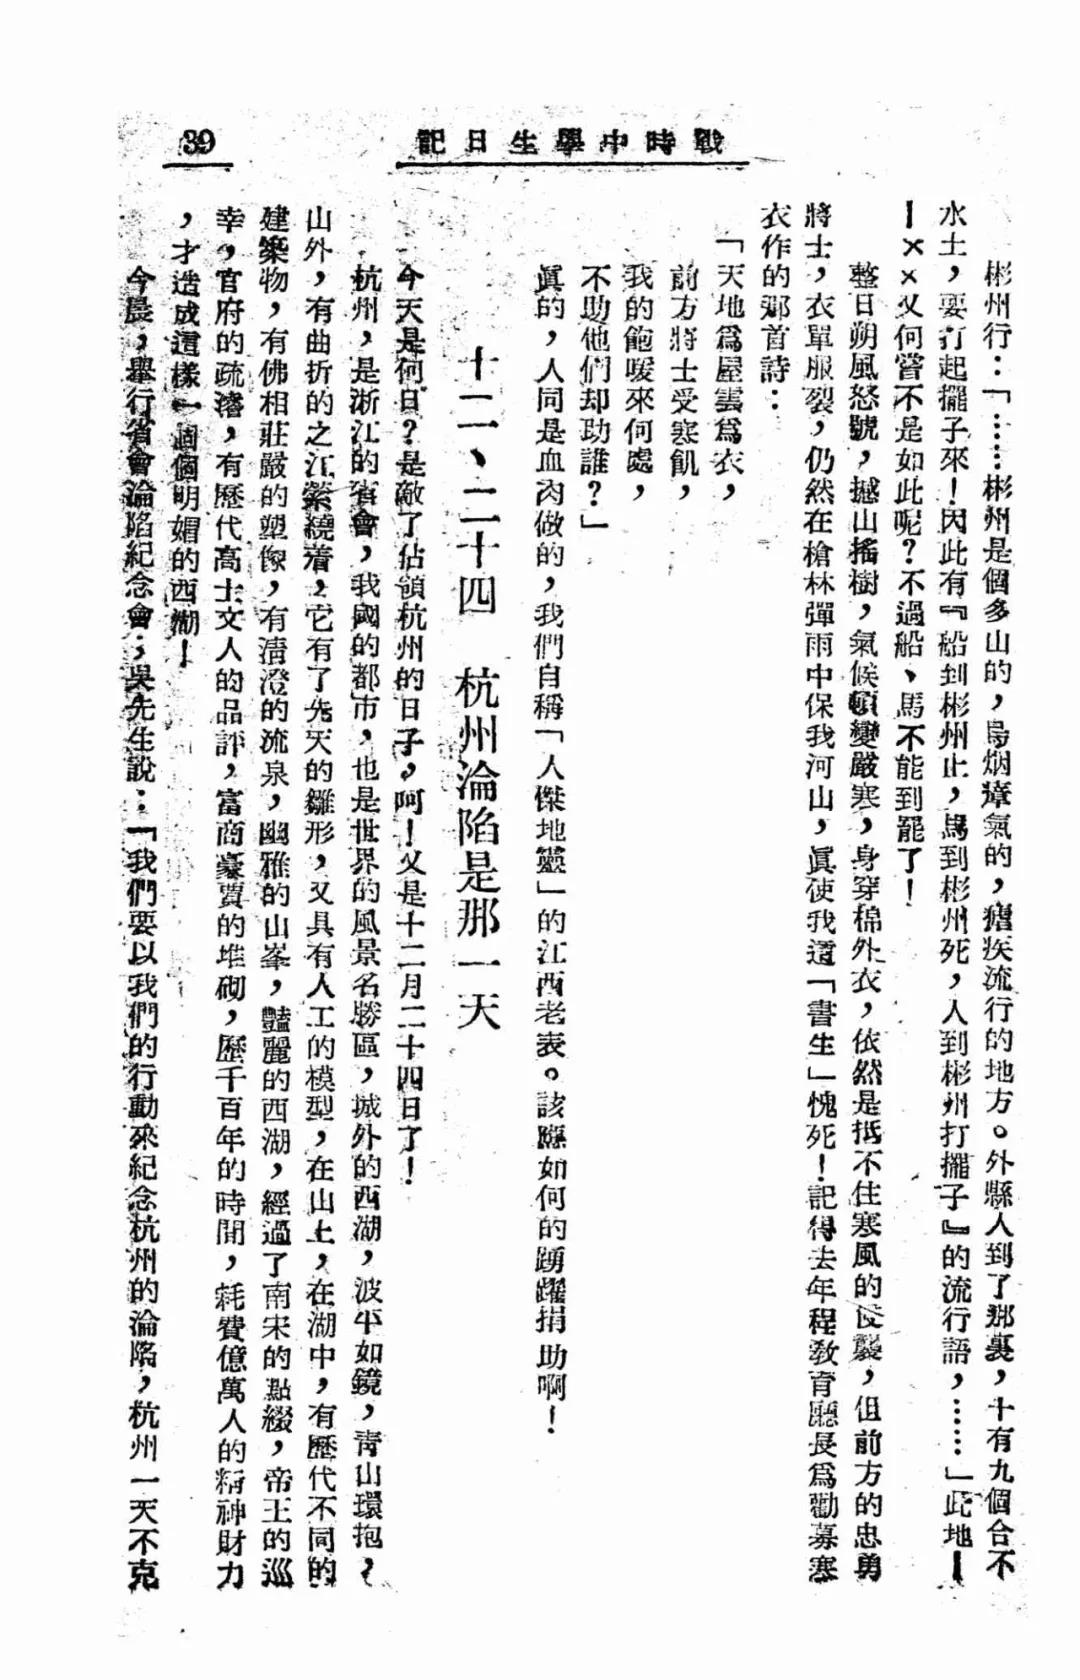 戰時中學生日記
39
彬州行：「……彬州是個多山的，烏烟瘴氣的，瘧疾流行的地方。外縣人到了那裏，十有九個合不
水土，要打起擺子來！因此有『船到彬州止，馬到彬州死，人到彬州打擺子』的流行語，……」此地—
—××又何嘗不是如此呢？不過船、馬不能到罷了！
整日朔風怒號，撼山搖樹，氣候頓變嚴寒，身穿棉外衣，依然是抵不住寒風的侵襲，但前方的忠勇
將士，衣單服裂，仍然在槍林彈雨中保我河山，眞使我這「書生」愧死！記得去年程敎育廳長爲勸募寒
衣作的那首詩：
「天地爲屋雲爲衣，
前方將士受寒飢，
我的飽暖來何處，
不助他們却助誰？」
眞的，人同是血肉做的，我們自稱「人傑地靈」的江西老表。該應如何的踴躍捐助啊！
十二、二十四　杭州淪陷是那一天
今天是何日？是敵了佔領杭州的日子，呵！又是十二月二十四日了！
杭州，是浙江的省會，我國的都市，也是世界的風景名勝區，城外的西湖，波平如鏡，靑山環抱，
山外，有曲折的之江縈繞着，它有了先天的雛形，又具有人工的模型，在山上，在湖中，有歷代不同的
建築物，有佛相莊嚴的塑像，有淸澄的流泉，幽雅的山峯，豔麗的西湖，經過了南宋的點綴，帝王的巡
幸，官府的疏濬，有歷代高士文人的品評，富商豪賈的堆砌，歷千百年的時間，耗費億萬人的精神財力
，才造成這樣一個個明媚的西湖！
今晨，舉行省會淪陷紀念會；吳先生說：「我們要以我們的行動來紀念杭州的淪陷，杭州一天不克